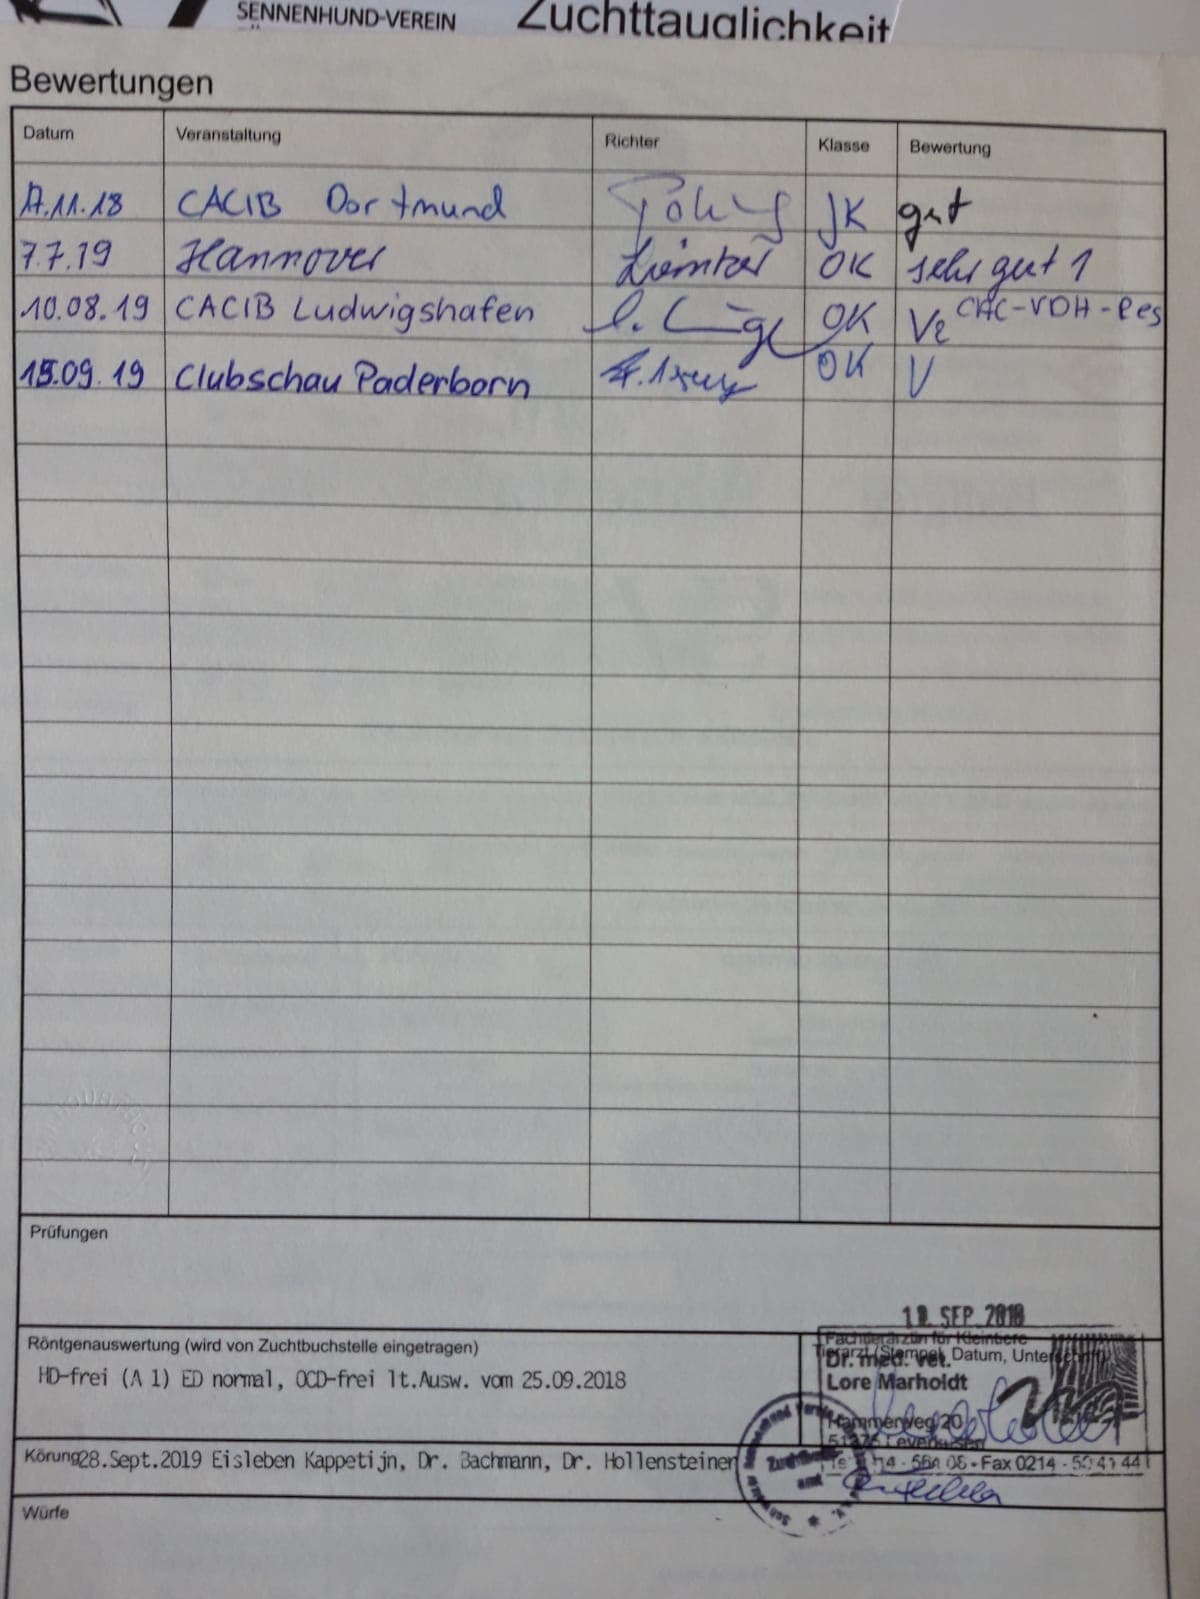 SENNENHUND-VEREIN
Zuchttauglichkeit
Bewertungen
Datum Veranstaltung Richter Klasse Bewertung
11.18 CACIB Dortmund JK gut
7.7.19 Hannover OK sehr gut 1
10.08.19 CACIB Ludwigshafen OK
15.09.19 Clubschau Paderborn OK V
Prüfungen
SEP. 2018
Röntgenauswertung (wird von Zuchtbuchstelle eingetragen)
Fachtierärztin für Kleintiere
Tierarzt (Stempel, Datum, Unterschrift)
HD-frei (A 1) ED normal, OCD-frei lt.Ausw. vom 25.09.2018
Dr. med. vet.
Lore Marholdt
Hammerweg 20
Körung 28.Sept.2019 Eisleben Kappetijn, Dr. Bachmann, Dr. Hollensteiner
Fax 0214
Würfe